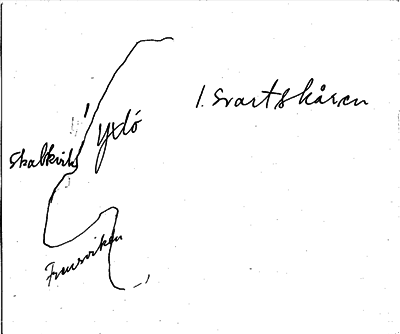 1. Svartskären
Yxlö
Skalkvik
Frusviken